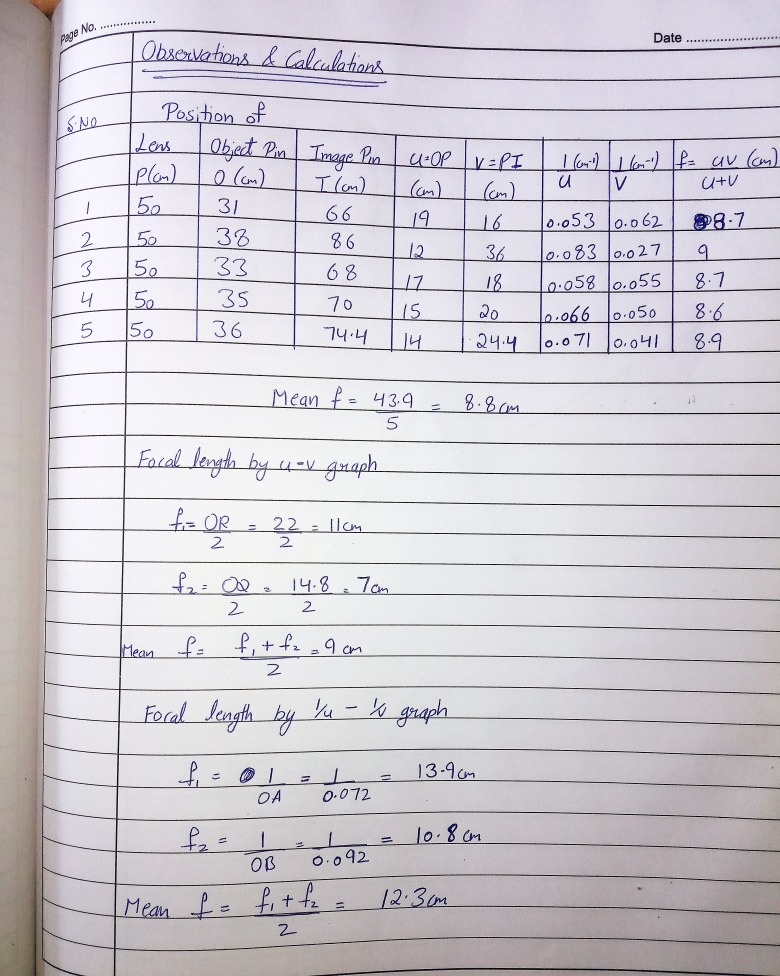 Page No. ................
Date ........................
Observations & Calculations
S.No Position of
Lens Object Pin Image Pin u=OP v=PI 1/u (cm⁻¹) 1/v (cm⁻¹) f= uv/u+v (cm)
P(cm) O (cm) I (cm) (cm) (cm)
1 50 31 66 19 16 0.053 0.062 8.7
2 50 38 86 12 36 0.083 0.027 9
3 50 33 68 17 18 0.058 0.055 8.7
4 50 35 70 15 20 0.066 0.050 8.6
5 50 36 74.4 14 24.4 0.071 0.041 8.9
Mean f = 43.9/5 = 8.8 cm
Focal length by u-v graph
f₁ = OR/2 = 22/2 = 11cm
f₂ = OQ/2 = 14.8/2 = 7cm
Mean f = f₁ + f₂/2 = 9 cm
Focal length by 1/u - 1/v graph
f₁ = 1/OA = 1/0.072 = 13.9cm
f₂ = 1/OB = 1/0.092 = 10.8 cm
Mean f = f₁ + f₂/2 = 12.3cm